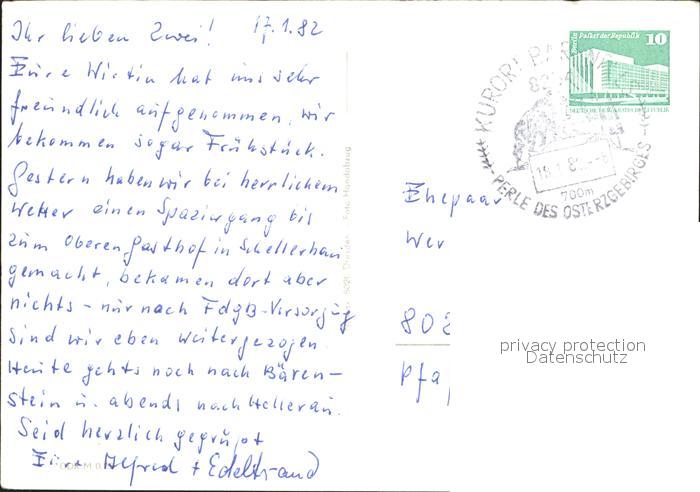 Ihr lieben Zwei! 17.1.82
Eure Wirtin hat uns sehr
freundlich aufgenommen, wir
bekommen sogar Frühstück.
Gestern haben wir bei herrlichem
Wetter einen Spaziergang bis
zum Oberen Gasthof in Schellerhau
gemacht, bekamen dort aber
nichts – nur nach FdgB-Versorgung
sind wir eben weitergezogen.
Heute gehts noch nach Bären-
stein u. abends nach Hellerau.
Seid herzlich gegrüßt
Eure Alfred + Edeltraud
Foto: Handelszug
8021 Dresden
Berlin Palast der Republik 10
DEUTSCHE DEMOKRATISCHE REPUBLIK
KURORT
700m
PERLE DES OSTERZGEBIRGES
Ehepaar
Wer
802
Pfa
privacy protection
Datenschutz